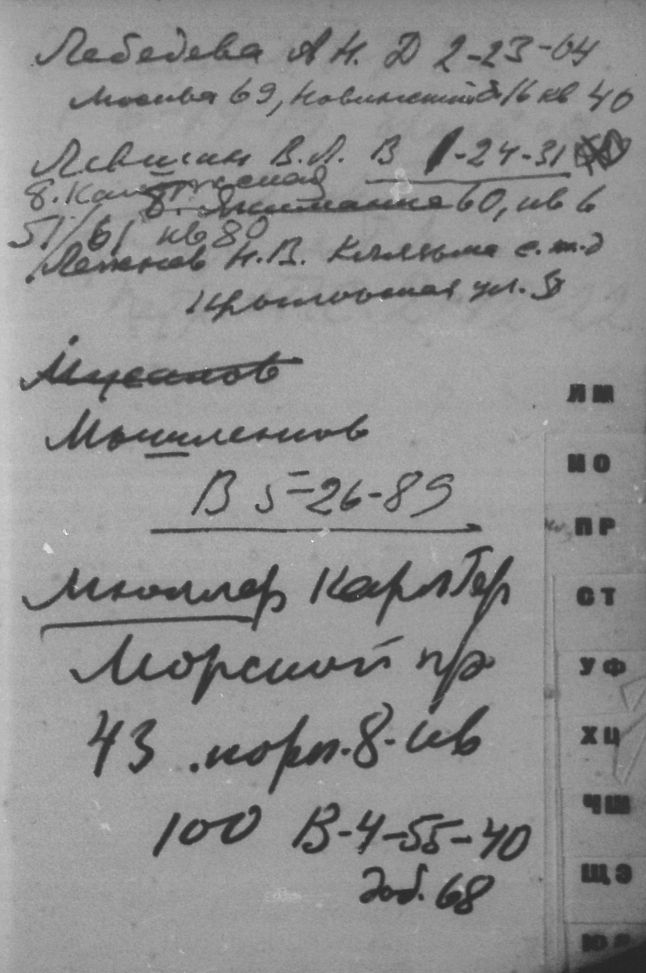 Лебедева А Н. Д 2-23-64
Москва 69, Новинский б 16 кв 40
Левшин В.Л. В 1-24-31
б. Калужская
б. Якиманка 60, кв 6
51/61 кв 80
Лежнев Н.В. Клязьма с.ж.д
ул. 5
Мусатов
Мышленков
В 5-26-89
Мюллер Карл Гер
Морской пр
43 . корп. 8. кв
100 В-4-55-40
доб. 68
ЛМ
НО
ПР
СТ
УФ
ХЦ
ЧШ
ЩЭ
ЮЯ